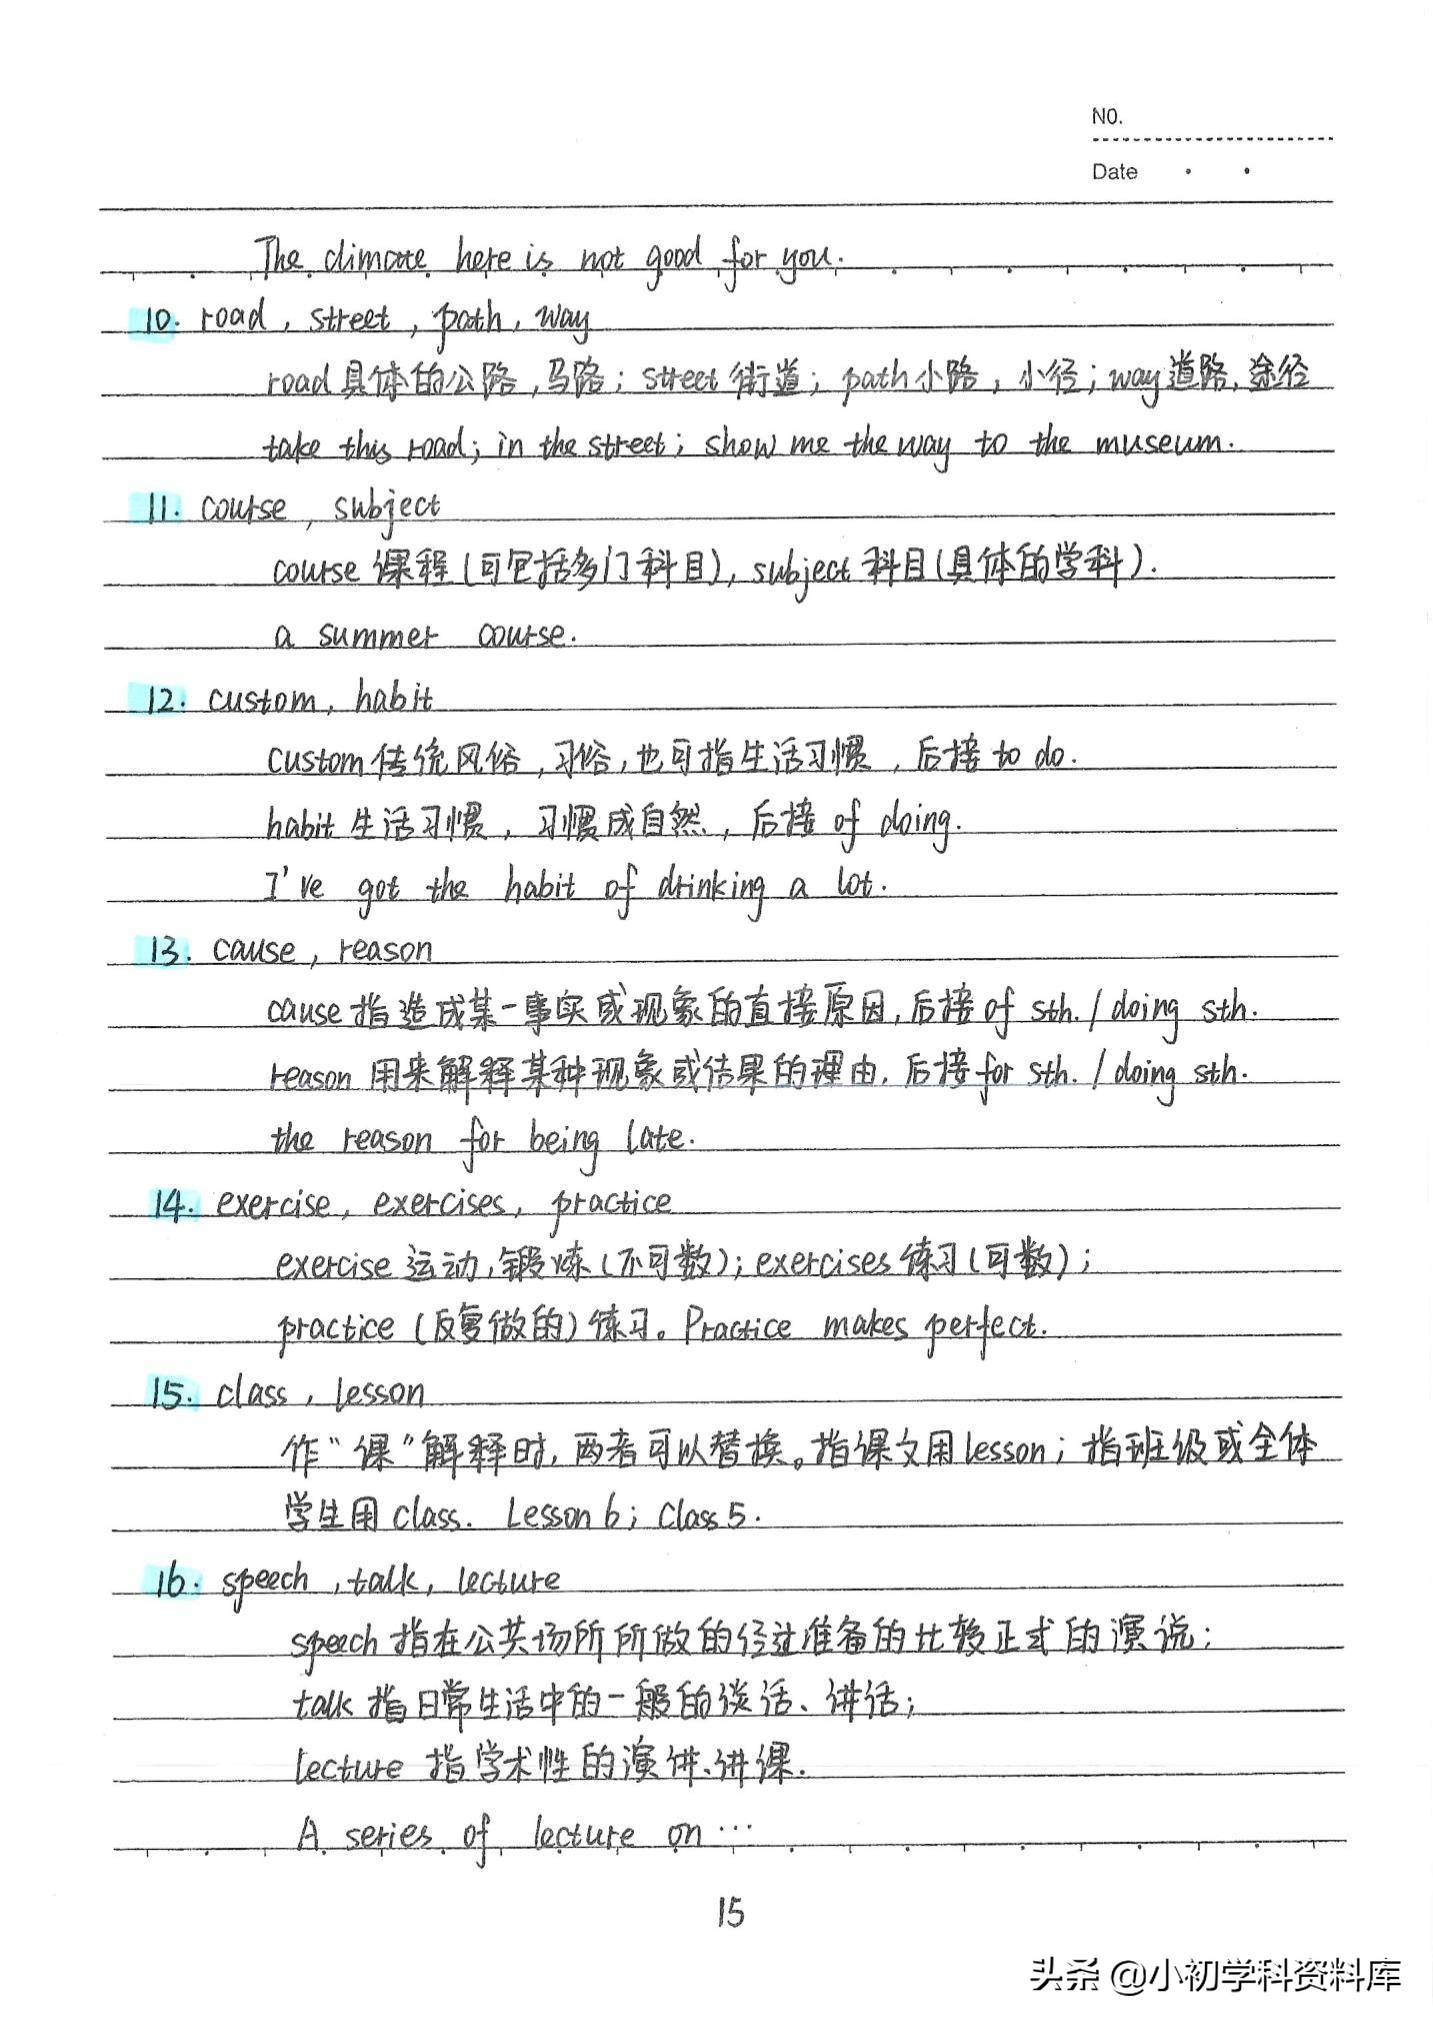 NO.
Date · ·
The climate here is not good for you.
10. road, street, path, way
road具体的公路,马路; street 街道; path小路, 小径; way道路,途径
take this road; in the street; show me the way to the museum.
11. course, subject
course 课程(可包括多门科目), subject 科目(具体的学科).
a summer course.
12. custom, habit
custom 传统风俗,习俗,也可指生活习惯, 后接 to do.
habit 生活习惯, 习惯成自然, 后接 of doing.
I've got the habit of drinking a lot.
13. cause, reason
cause 指造成某一事实或现象的直接原因,后接 of sth. / doing sth.
reason 用来解释某种现象或结果的理由,后接 for sth. / doing sth.
the reason for being late.
14. exercise, exercises, practice
exercise 运动,锻炼(不可数); exercises 练习(可数);
practice (反复做的)练习。Practice makes perfect.
15. class, lesson
作“课”解释时,两者可以替换。指课文用lesson; 指班级或全体
学生用 class. Lesson 6; Class 5.
16. speech, talk, lecture
speech 指在公共场所所做的经过准备的比较正式的演说;
talk 指日常生活中的一般的谈话、讲话;
lecture 指学术性的演讲、讲课.
A series of lecture on …
15
头条 @小初学科资料库